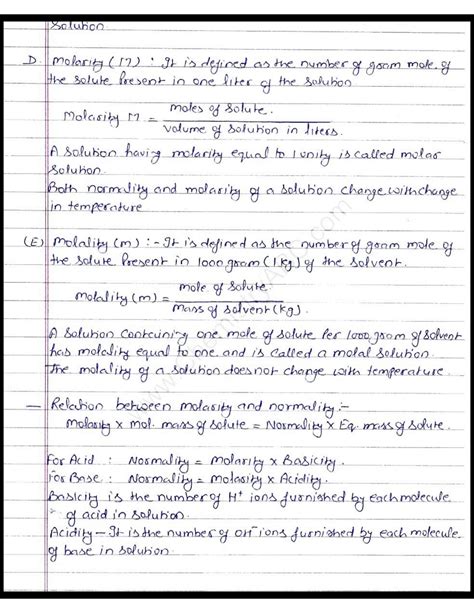 Solution
D. Molarity (M) : It is defined as the number of gram mole of
the solute present in one liter of the solution
Molarity M = moles of solute.
volume of solution in liters.
A solution having molarity equal to 1 unity is called molar
solution.
Both normality and molarity of a solution change with change
in temperature
(E) Molality (m) :- It is defined as the number of gram mole of
the solute present in 1000 gram (1 kg) of the solvent.
molality (m) = mole of solute
mass of solvent (kg).
A solution containing one mole of solute per 1000 gram of solvent
has molality equal to one and is called a molal solution.
The molality of a solution does not change with temperature.
— Relation between molarity and normality :-
Molarity x mol. mass of solute = Normality x Eq. mass of solute.
For Acid : Normality = Molarity x Basicity.
For Base : Normality = molarity x Acidity.
Basicity is the number of H⁺ ions furnished by each molecule
of acid in solution.
Acidity - It is the number of OH⁻ ions furnished by each molecule
of base in solution.